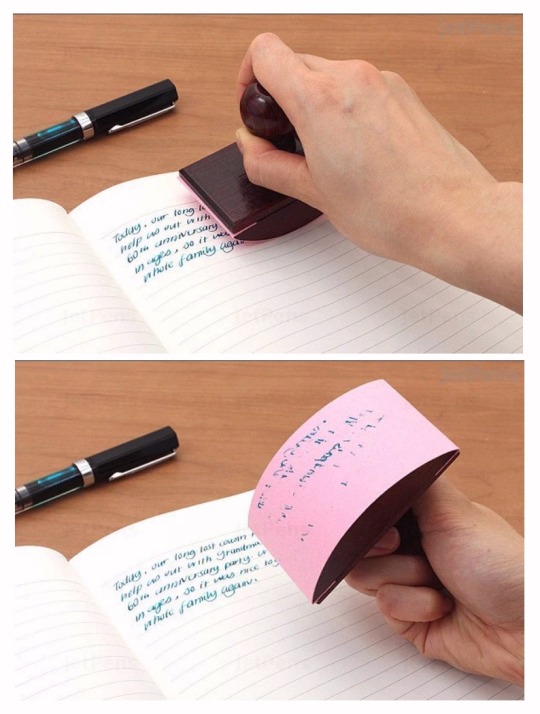 Today, our long
help us out with
60th anniversary
in ages, so it was
whole family again.
Today, our long lost cousin
help us out with Grandma
60th anniversary party.
in ages, so it was nice to
whole family again.